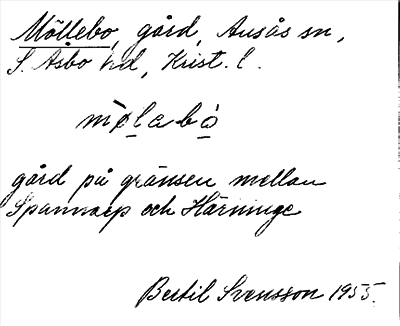 Möllebo, gård, Ausås sn,
S. Åsbo hd, Krist. l.
mø̀labò
gård på gränsen mellan
Spannarp och Härninge
Bertil Svensson 1955.